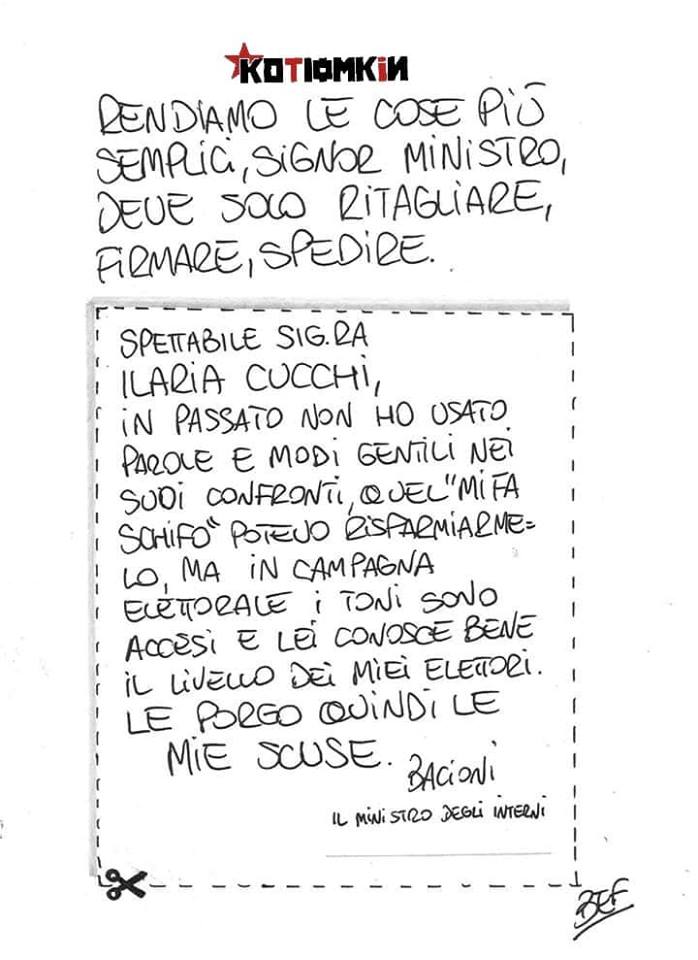 KOTIOMKIN
RENDIAMO LE COSE PIÙ
SEMPLICI, SIGNOR MINISTRO,
DEVE SOLO RITAGLIARE,
FIRMARE, SPEDIRE.
SPETTABILE SIG.RA
ILARIA CUCCHI,
IN PASSATO NON HO USATO
PAROLE E MODI GENTILI NEI
SUOI CONFRONTI, QUEL "MI FA
SCHIFO" POTEVO RISPARMIARME=
LO, MA IN CAMPAGNA
ELETTORALE I TONI SONO
ACCESI E LEI CONOSCE BENE
IL LIVELLO DEI MIEI ELETTORI.
LE PORGO QUINDI LE
MIE SCUSE.
BACIONI
IL MINISTRO DEGLI INTERNI
BEF